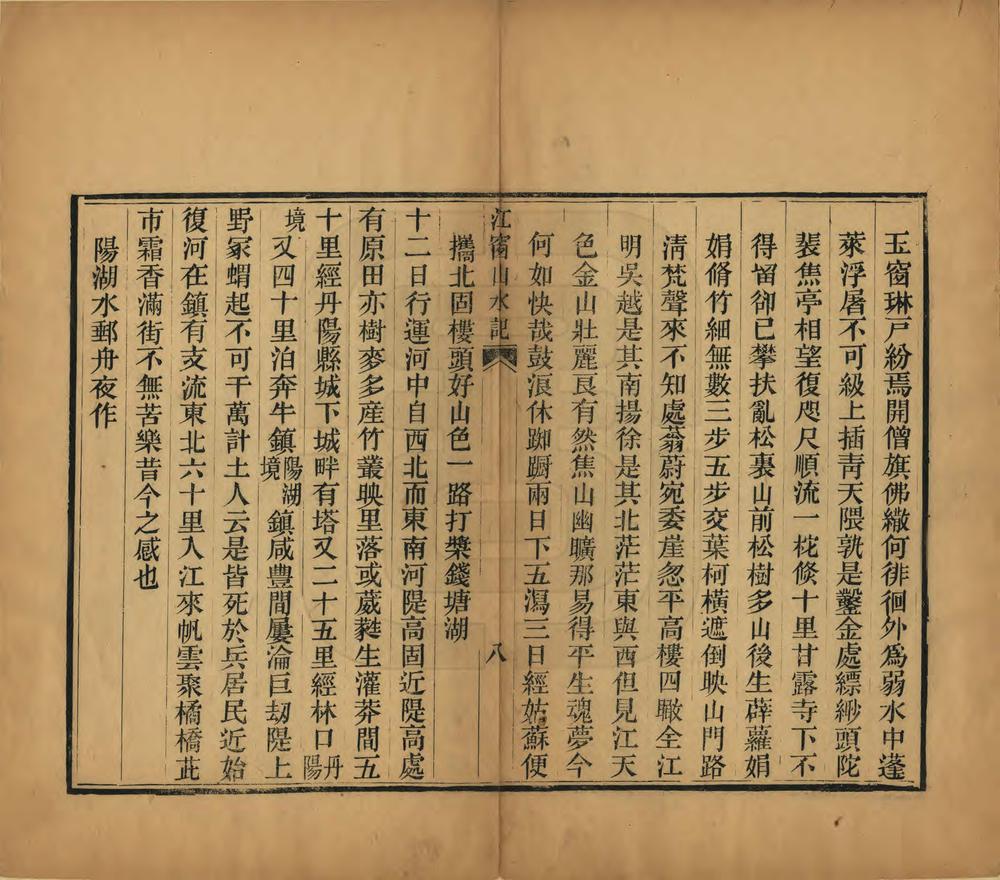 玉窗琳戸紛焉開僧旗佛繖何徘徊外爲弱水中蓬
萊浮屠不可級上插靑天隈孰是鑿金處縹緲頭陀
裴焦亭相望復咫尺順流一柁倏十里甘露寺下不
得畱卻已攀扶亂松裏山前松樹多山後生薜蘿娟
娟脩竹細無數三步五步交葉柯橫遮倒映山門路
淸梵聲來不知處蓊蔚宛委崖忽平高樓四瞰全江
明吳越是其南揚徐是其北茫茫東與西但見江天
色金山壯麗良有然焦山幽曠那易得平生魂夢今
何如快哉鼓浪休踟躕兩日下五瀉三日經姑蘇便
江窗山水記 八
攜北固樓頭好山色一路打槳錢塘湖
十二日行運河中自西北而東南河隄高固近隄高處
有原田亦樹麥多産竹叢映里落或葳蕤生灌莽間五
十里經丹陽縣城下城畔有塔又二十五里經林口丹陽
境又四十里泊奔牛鎮陽湖境鎮咸豐間屢淪巨刼隄上
野冢蝟起不可千萬計土人云是皆死於兵居民近始
復河在鎮有支流東北六十里入江來帆雲聚橘橋茈
市霜香滿街不無苦樂昔今之感也
陽湖水郵舟夜作